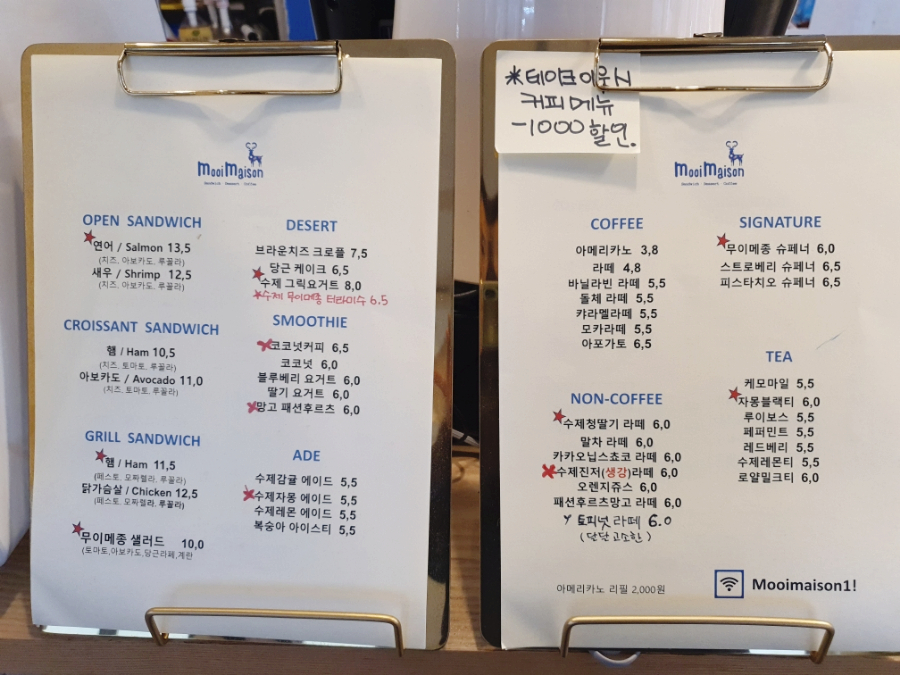 Mooi Maison
Sandwich Dessert Coffee
OPEN SANDWICH
연어 / Salmon 13,5
(치즈, 아보카도, 루꼴라)
새우 / Shrimp 12,5
(치즈, 아보카도, 루꼴라)
CROISSANT SANDWICH
햄 / Ham 10,5
(치즈, 토마토, 루꼴라)
아보카도 / Avocado 11,0
(치즈, 토마토, 루꼴라)
GRILL SANDWICH
햄 / Ham 11,5
(페스토, 모짜렐라, 루꼴라)
닭가슴살 / Chicken 12,5
(페스토, 모짜렐라, 루꼴라)
무이메종 샐러드 10,0
(토마토,아보카도,당근라페,계란
DESERT
브라운치즈 크로플 7,5
당근 케이크 6,5
수제 그릭요거트 8,0
*수제 무이메종 티라미수 6.5
SMOOTHIE
코코넛커피 6,5
코코넛 6,0
블루베리 요거트 6,0
딸기 요거트 6,0
망고 패션후르츠 6,0
ADE
수제감귤 에이드 5,5
수제자몽 에이드 5,5
수제레몬 에이드 5,5
복숭아 아이스티 5,5
*테이크아웃시
커피메뉴
-1000 할인.
Mooi Maison
Sandwich Dessert Coffee
COFFEE
아메리카노 3,8
라떼 4,8
바닐라빈 라떼 5,5
돌체 라떼 5,5
캬라멜라떼 5,5
모카라떼 5,5
아포가토 6,5
NON-COFFEE
수제청딸기 라떼 6,0
말차 라떼 6,0
카카오닙스쵸코 라떼 6,0
수제진저(생강)라떼 6,0
오렌지쥬스 6,0
패션후르츠망고 라떼 6,0
토피넛 라떼 6.0
(단단고소한)
아메리카노 리필 2,000원
SIGNATURE
무이메종 슈페너 6,0
스트로베리 슈페너 6,5
피스타치오 슈페너 6,5
TEA
케모마일 5,5
자몽블랙티 6,0
루이보스 5,5
페퍼민트 5,5
레드베리 5,5
수제레몬티 5,5
로얄밀크티 6,0
Mooimaison1!